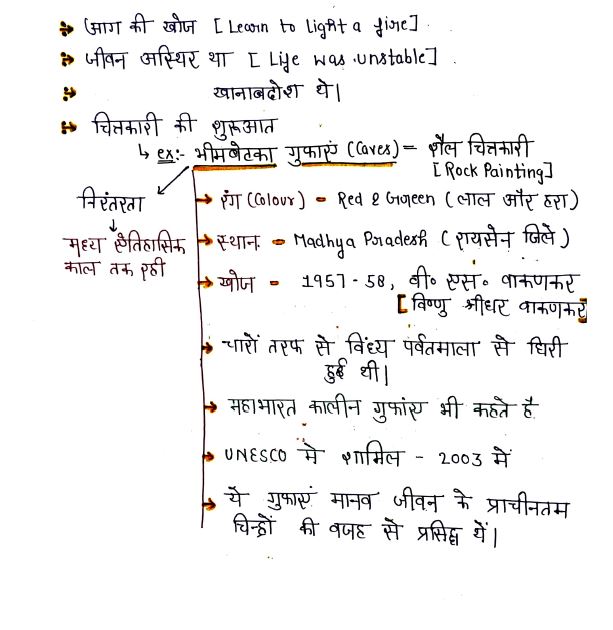 आग की खोज [Learn to light a fire]
जीवन अस्थिर था [Life was unstable]
खानाबदोश थे।
चित्तकारी की शुरूआत
↳ ex:- भीमबेटका गुफाएं (Caves) = शैल चित्तकारी
[Rock Painting]
निरंतरता
↓
मध्य ऐतिहासिक
काल तक रही
→ रंग (Colour) - Red & Green (लाल और हरा)
→ स्थान - Madhya Pradesh (रायसेन जिले)
→ खोज - 1957-58, वी॰ एस॰ वाकणकर
[विष्णु श्रीधर वाकणकर]
→ चारों तरफ से विंध्य पर्वतमाला से घिरी
हुई थी।
→ महाभारत कालीन गुफांए भी कहते है
→ UNESCO मे शामिल - 2003 में
→ ये गुफाएं मानव जीवन के प्राचीनतम
चिन्हों की वजह से प्रसिद्ध थें।